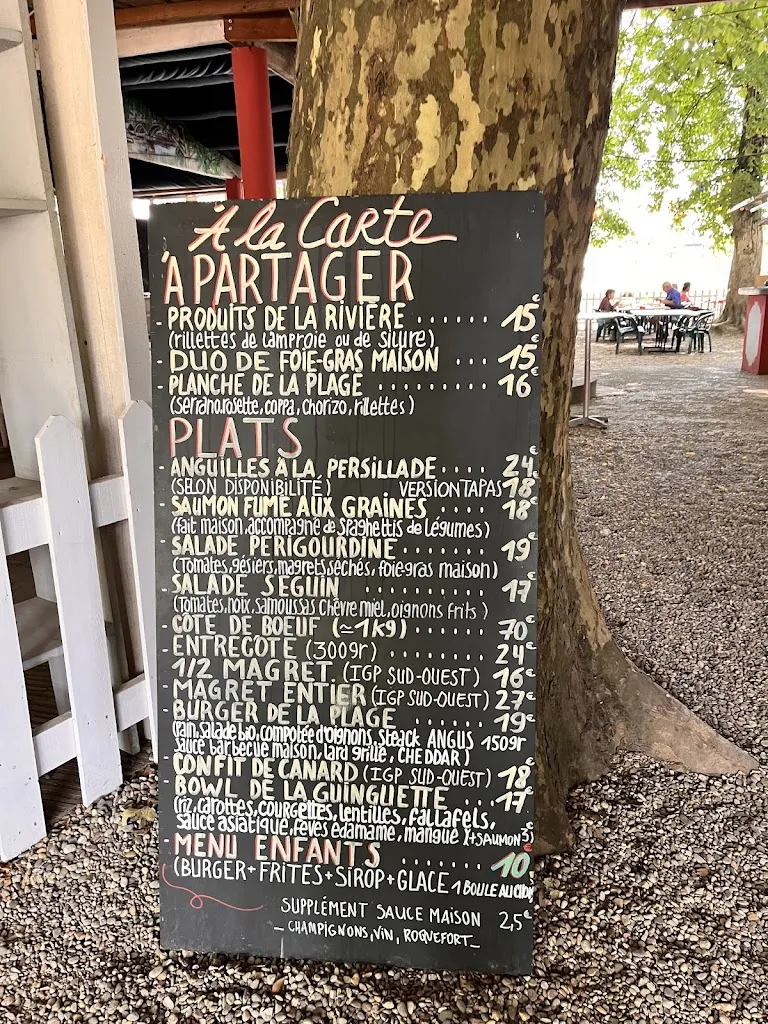 À la Carte
À PARTAGER
- PRODUITS DE LA RIVIÈRE ...... 15€
(rillettes de lamproie ou de silure)
- DUO DE FOIE-GRAS MAISON ... 15€
- PLANCHE DE LA PLAGE ......... 16€
(Serrano, rosette, coppa, chorizo, rillettes)
PLATS
- ANGUILLES À LA PERSILLADE .... 24€
(SELON DISPONIBILITÉ) VERSION TAPAS 18€
- SAUMON FUMÉ AUX GRAINES ...... 18€
(fait maison, accompagné de spaghettis de légumes)
- SALADE PÉRIGOURDINE ....... 19€
(Tomates, gésiers, magrets séchés, foie-gras maison)
- SALADE SEGUIN ......... 17€
(Tomates, noix, samoussas chèvre miel, oignons frits)
- CÔTE DE BOEUF (≃1K9) ...... 70€
- ENTRECÔTE (3009r) ........ 24€
- 1/2 MAGRET (IGP SUD-OUEST) 16€
- MAGRET ENTIER (IGP SUD-OUEST) 27€
- BURGER DE LA PLAGE ...... 19€
(Pain, salade bio, compotée d'oignons, steack ANGUS 1509r
sauce barbecue maison, lard grillé, CHEDDAR)
- CONFIT DE CANARD (IGP SUD-OUEST) 18€
- BOWL DE LA GUINGUETTE ... 17€
(riz, carottes, courgettes, lentilles, fallafels,
sauce asiatique, fèves edamame, mangue (+SAUMON 3€)
- MENU ENFANTS ....... 10€
(BURGER + FRITES + SIROP + GLACE 1 BOULE AU CHOIX)
SUPPLÉMENT SAUCE MAISON 2,5€
- CHAMPIGNONS, VIN, ROQUEFORT -